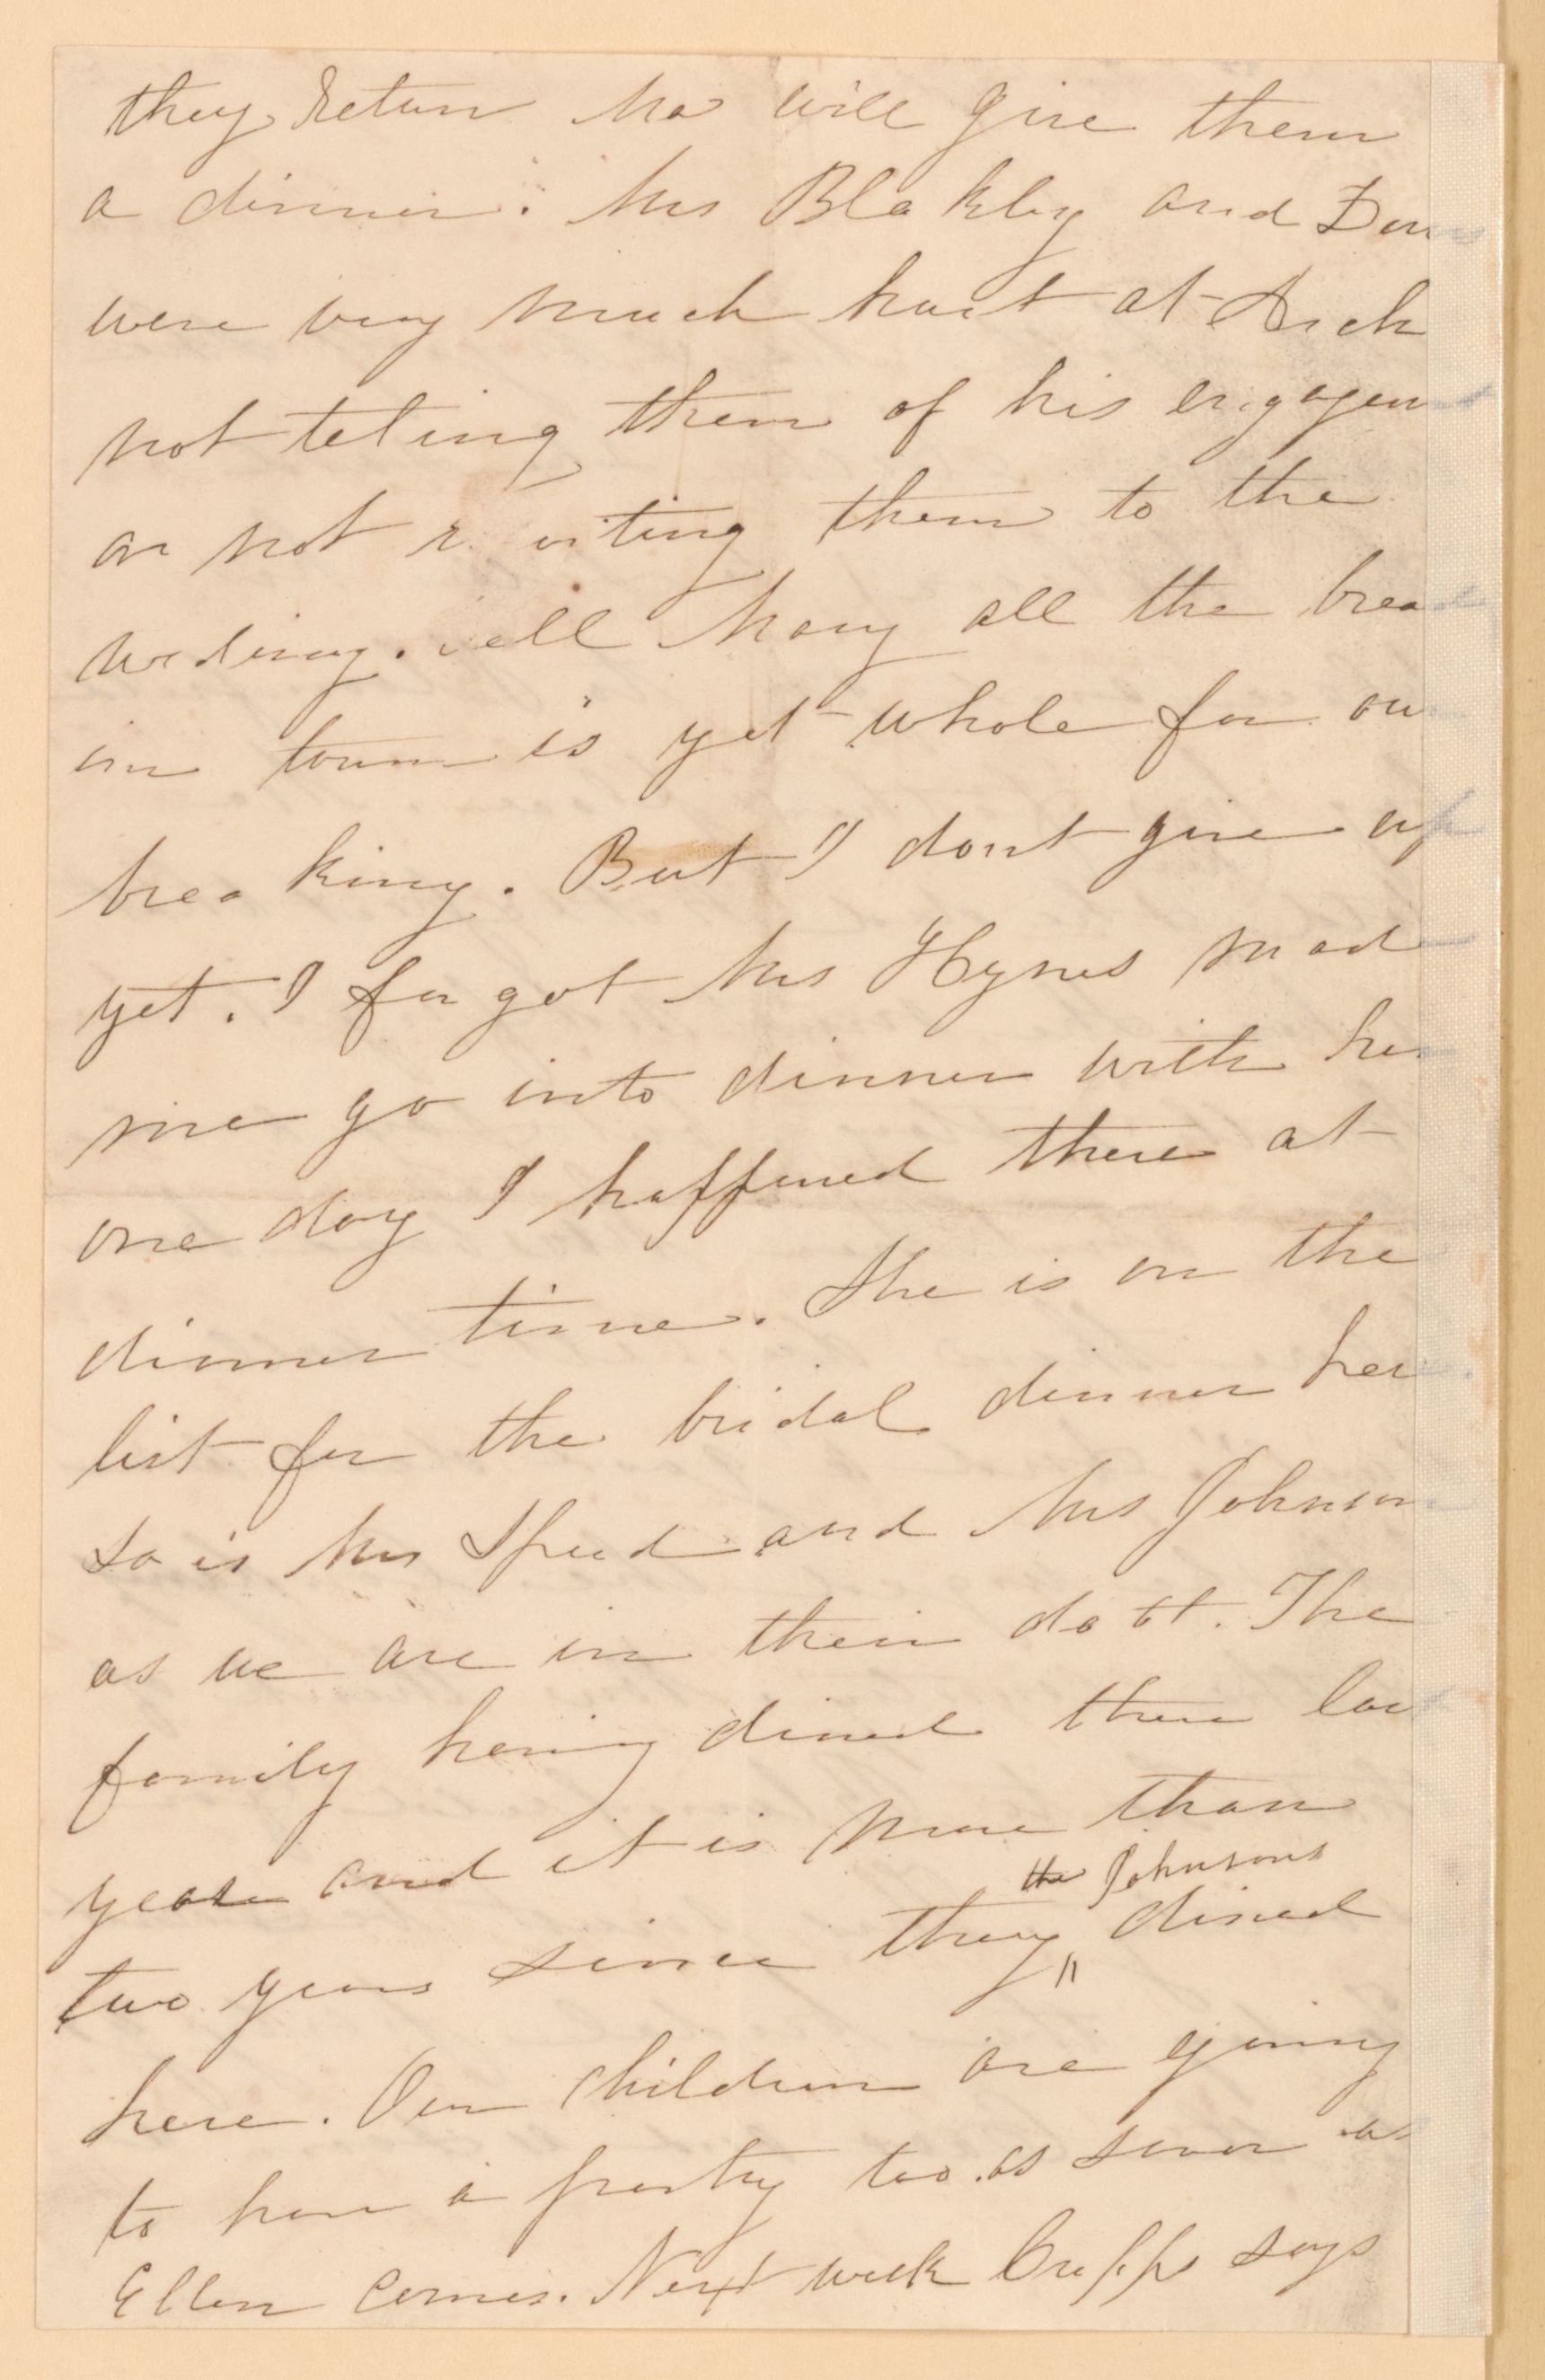 they return Ma will give them
a dinner. Mrs Blakley and
were very much hurt at Dick
not teling them of his engagem
or not inviting them to the
weding. Well Mary all the bread
in town is yet whole for our
breaking. But I dont give up
yet. I forgot Mrs Hynes mad
me go into dinner with her
one day I happened there at
dinner time. She is on the
list for the bridal dinner her
so is Mrs Speed and Mrs Johnson
as we are in their dett. The
family having dined there last
year and it is more than
two years since they the Johnsons dined
here. Our children are going
to have a party too as soon as
Ellen comes. Next week says